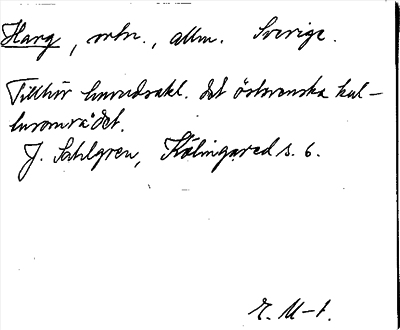 Harg, ortn., allm. Sverige.
Tillhör huvudsakl. det östsvenska kul-
turområdet.
J. Sahlgren, Kölingared s. 6.
E. M-t.